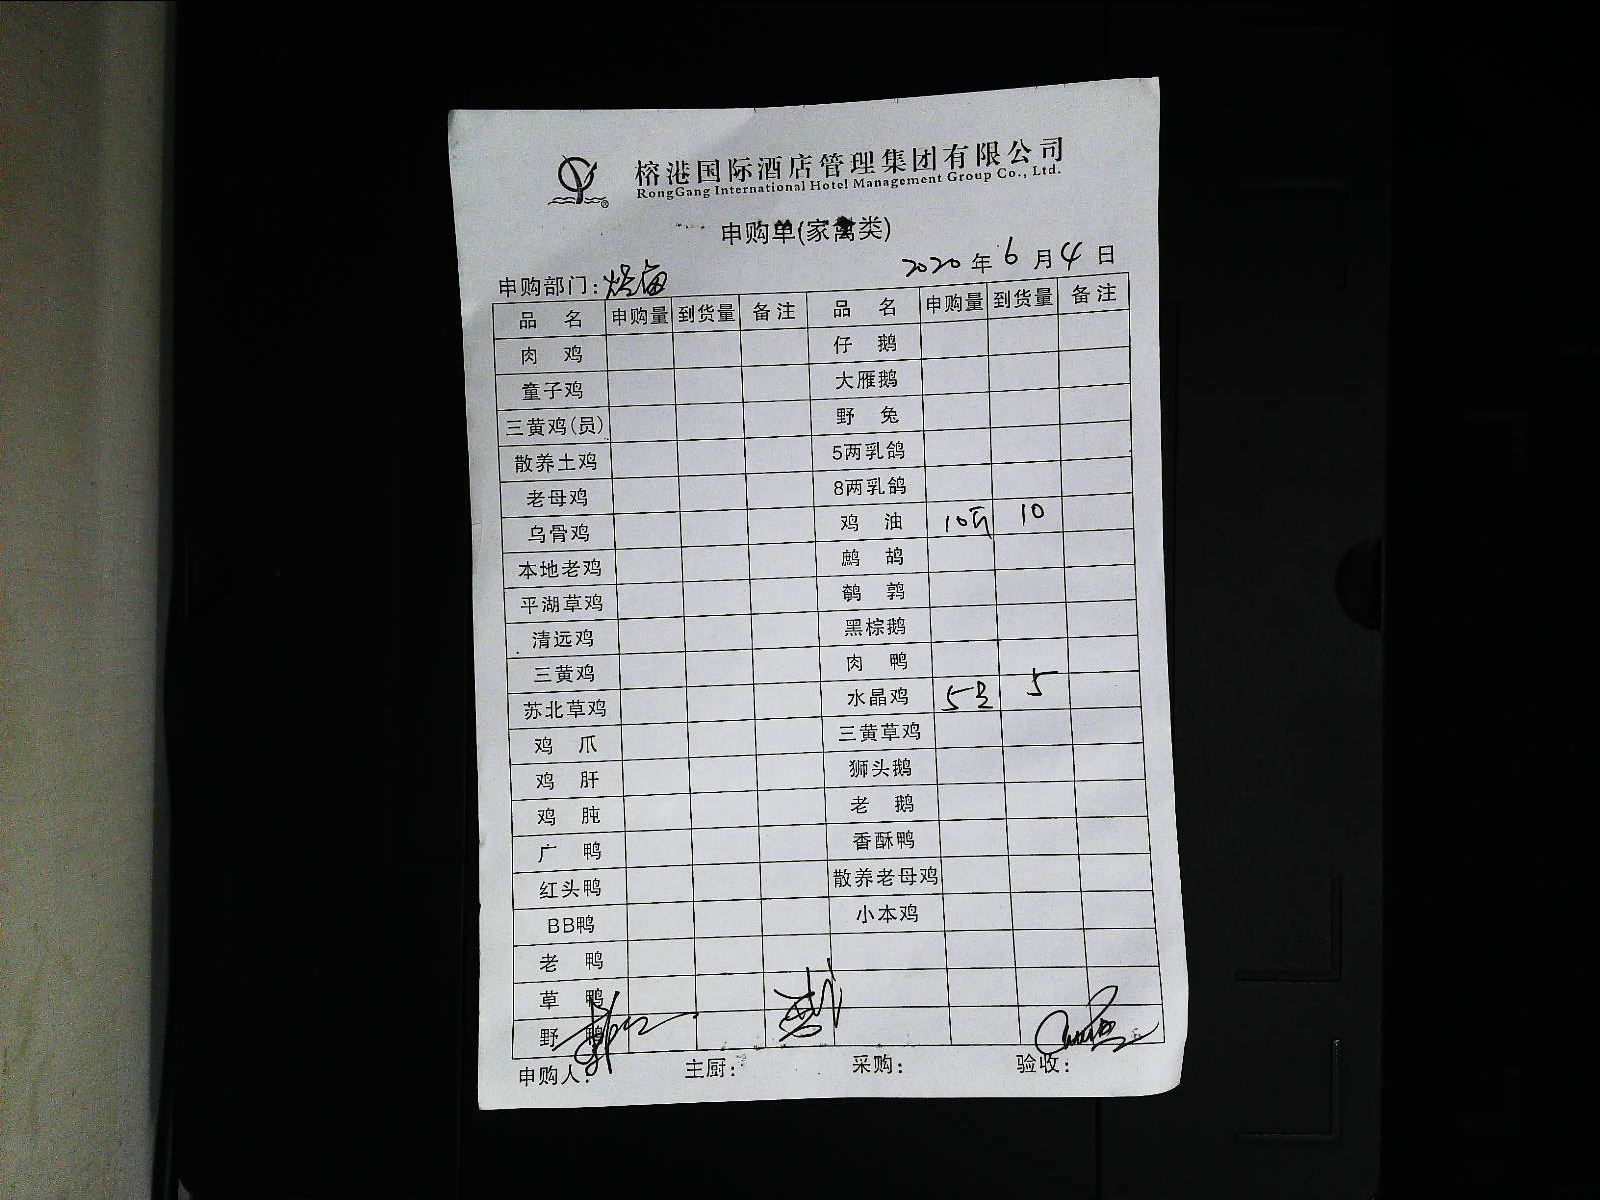 榕港国际酒店管理集团有限公司
RongGang International Hotel Management Group Co., Ltd.
申购单(家禽类)
2020年6月4日
申购部门:
品名 申购量 到货量 备注 品名 申购量 到货量 备注
肉鸡 仔鹅
童子鸡 大雁鹅
三黄鸡(员) 野兔
散养土鸡 5两乳鸽
老母鸡 8两乳鸽
乌骨鸡 鸡油 10斤 10
本地老鸡 鹧鸪
平湖草鸡 鹌鹑
清远鸡 黑棕鹅
三黄鸡 肉鸭
苏北草鸡 水晶鸡 5只 5
鸡爪 三黄草鸡
鸡肝 狮头鹅
鸡肫 老鹅
广鸭 香酥鸭
红头鸭 散养老母鸡
BB鸭 小本鸡
老鸭
草鸭
野鸭
申购人: 主厨: 采购: 验收: